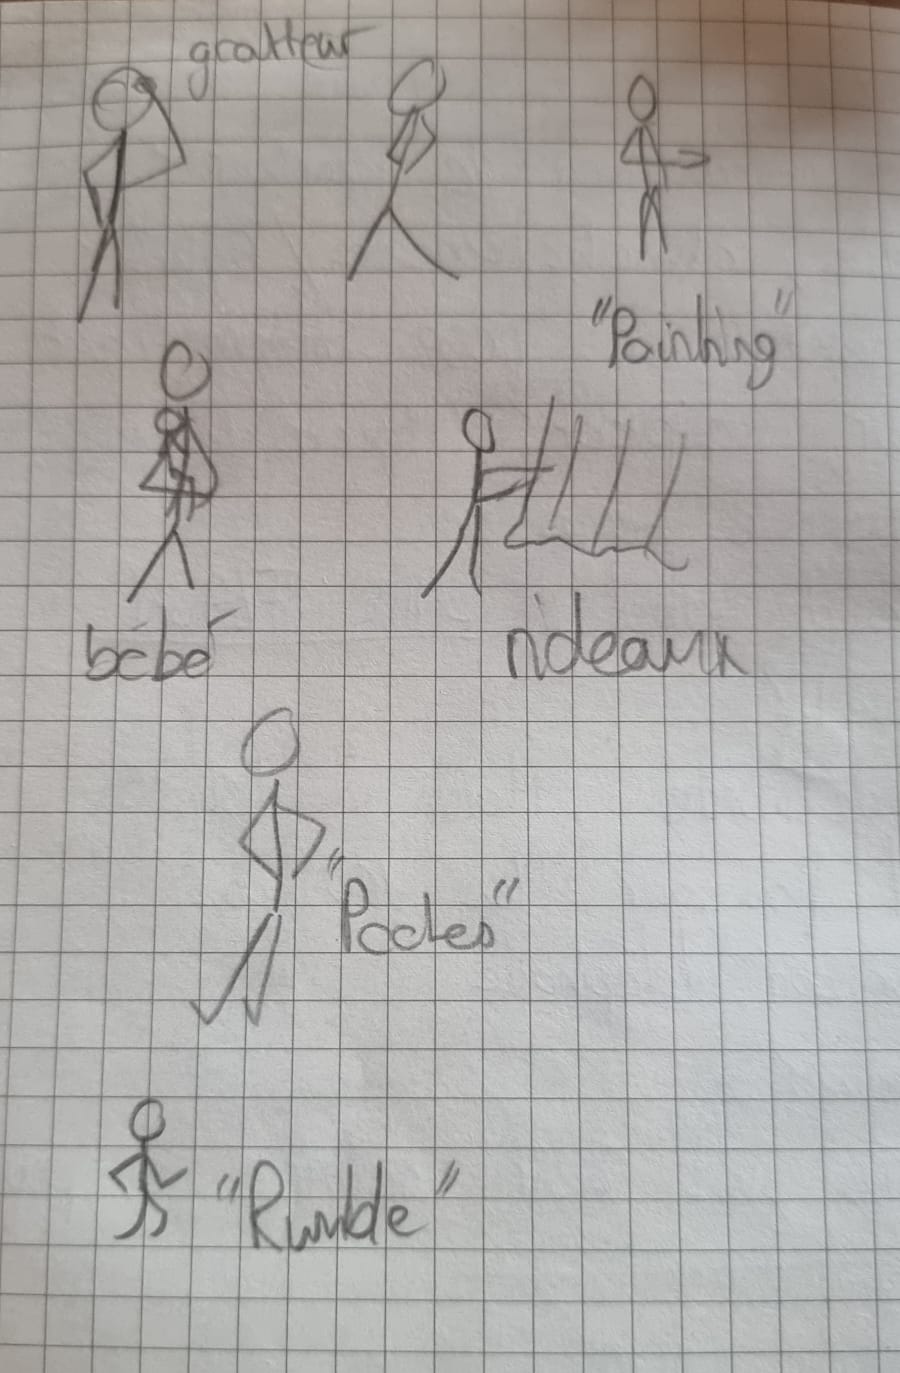 gratteur
"Pointing"
bébé
rideaux
"Poches"
"Rumble"